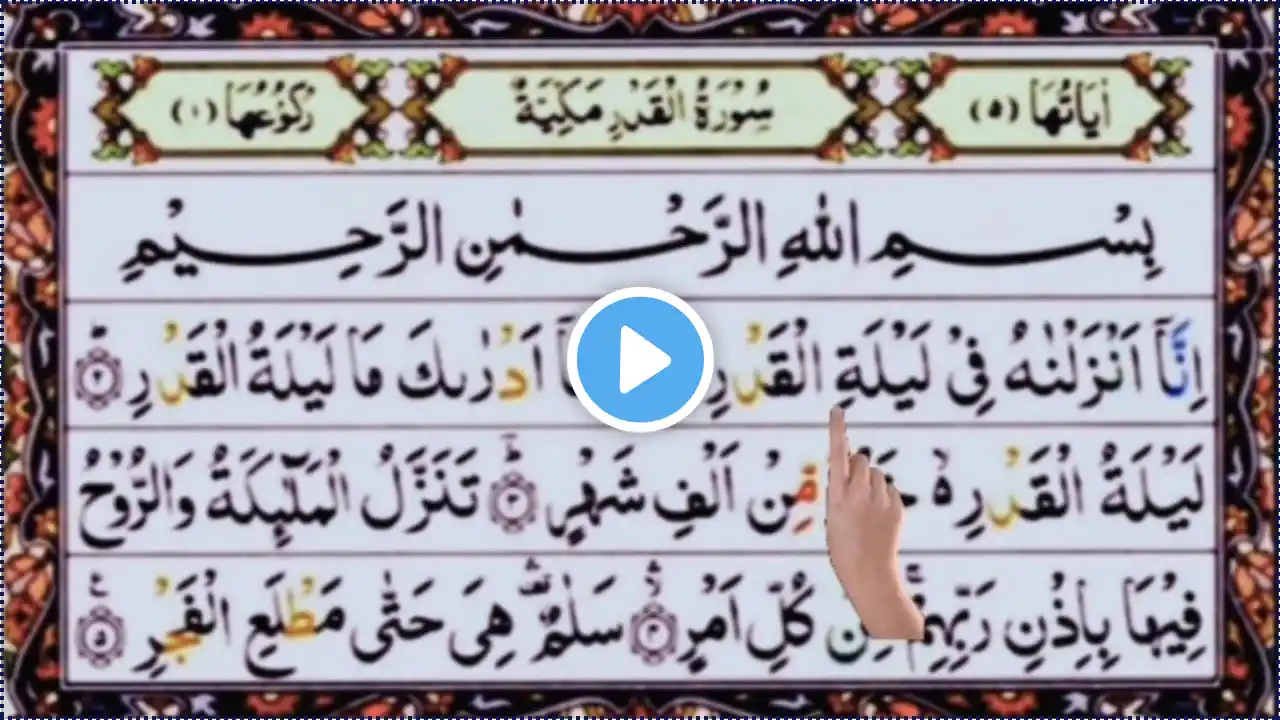 اٰيَاتُهَا (٥) سُوْرَةُ الْقَدْرِ مَكِّيَّةٌ رُكُوْعُهَا (١)
بِسْمِ اللّٰهِ الرَّحْمٰنِ الرَّحِيْمِ
اِنَّآ اَنْزَلْنٰهُ فِيْ لَيْلَةِ الْقَدْرِ اَدْرٰىكَ مَا لَيْلَةُ الْقَدْرِ ؕ ٢
لَيْلَةُ الْقَدْرِ ۙ مِّنْ اَلْفِ شَهْرٍ ؕ ٣ تَنَزَّلُ الْمَلٰٓئِكَةُ وَالرُّوْحُ
فِيْهَا بِاِذْنِ رَبِّهِمْ ۚ كُلِّ اَمْرٍ ۛ ٤ سَلٰمٌ ۛ هِيَ حَتّٰى مَطْلَعِ الْفَجْرِ ۠ ٥